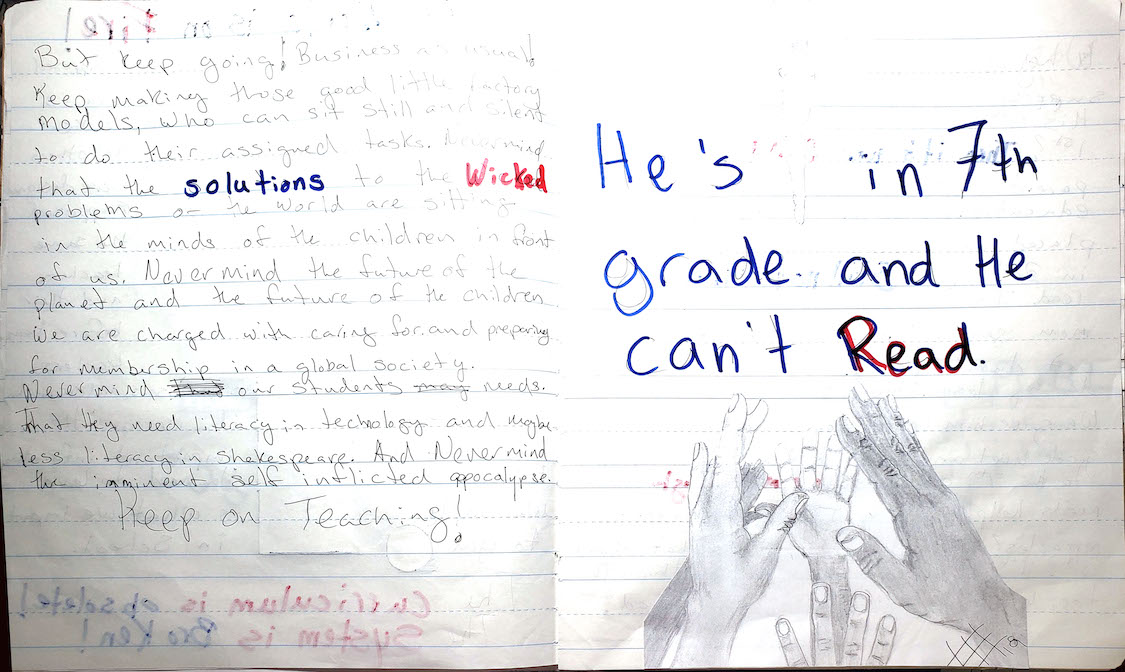 is on Fire!
But keep going! Business as usual!
Keep making those good little factory
models, who can sit still and silent
to do their assigned tasks. Nevermind
that the solutions to the Wicked
problems of the world are sitting
in the minds of the children in front
of us. Never mind the future of the
planet and the future of the children
we are charged with caring for, and preparing
for membership in a global society.
Never mind our students may needs.
That they need literacy in technology and maybe
less literacy in Shakespeare. And Nevermind
the imminent self inflicted appocalypse.
Keep on Teaching!
Curriculum is obsolete!
System is Broken!
He's in 7th
grade and He
can't Read.